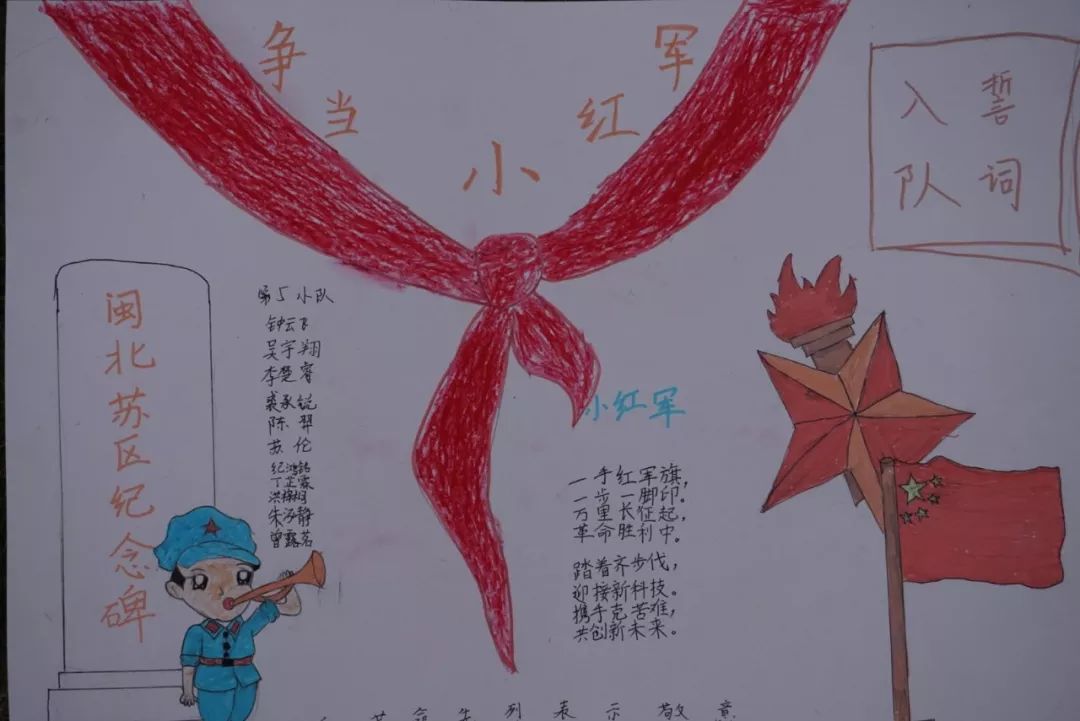 争当小红军
入誓
队词
闽北苏区纪念碑
第5小队
钟云飞
吴宇翔
李楚睿
裘承锐
陈羿
苏伦
丁芷霖
朱汐静
曾露茗
小红军
一手红军旗，
一步一脚印。
万里长征起，
革命胜利中。
踏着齐步伐，
迎接新科技。
携手克苦难，
共创新未来。
革命先列表示敬意